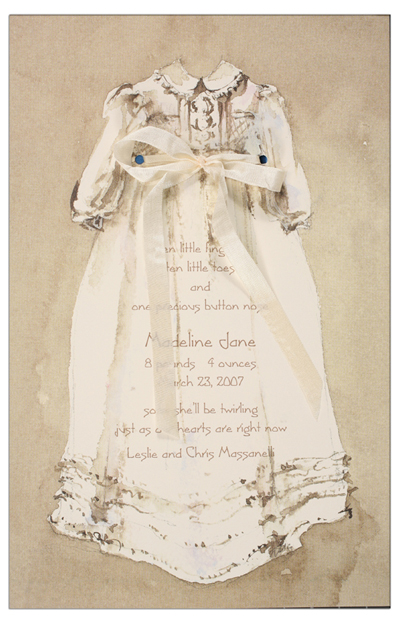 ten little
ten little toes
and
one precious button nose
Madeline Jane
8 pounds 4 ounces
March 23, 2007
soon she'll be twirling
just as our hearts are right now
Leslie and Chris Massanelli